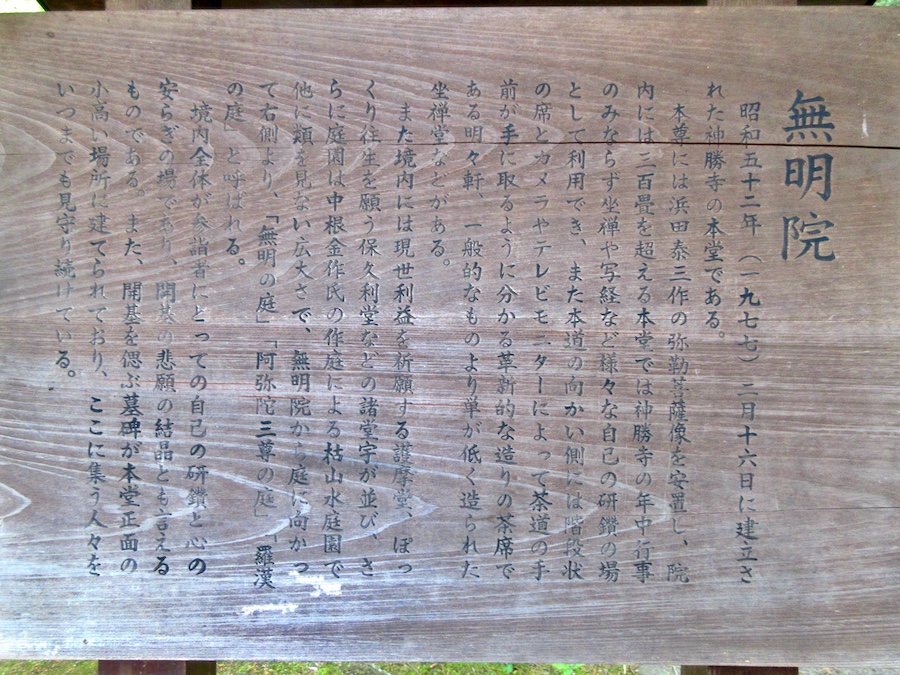 無明院
昭和五十二年(一九七七)二月十六日に建立さ
れた神勝寺の本堂である。
本尊には浜田泰三作の弥勒菩薩像を安置し、院
内には三百畳を超える本堂では神勝寺の年中行事
のみならず坐禅や写経など様々な自己の研鑽の場
として利用でき、また本道の向かい側には階段状
の席とカメラやテレビモニターによって茶道の手
前が手に取るように分かる革新的な造りの茶席で
ある明々軒、一般的なものより単が低く造られた
坐禅堂などがある。
また境内には現世利益を祈願する護摩堂、ぽっ
くり往生を願う保久利堂などの諸堂宇が並び、さ
らに庭園は中根金作氏の作庭による枯山水庭園で
他に類を見ない広大さで、無明院から庭に向かっ
て右側より、「無明の庭」「阿弥陀三尊の庭」「羅漢
の庭」と呼ばれる。
境内全体が参詣者にとっての自己の研鑽と心の
安らぎの場であり、開基の悲願の結晶とも言える
ものである。また、開基を偲ぶ墓碑が本堂正面の
小高い場所に建てられており、ここに集う人々を
いつまでも見守り続けている。